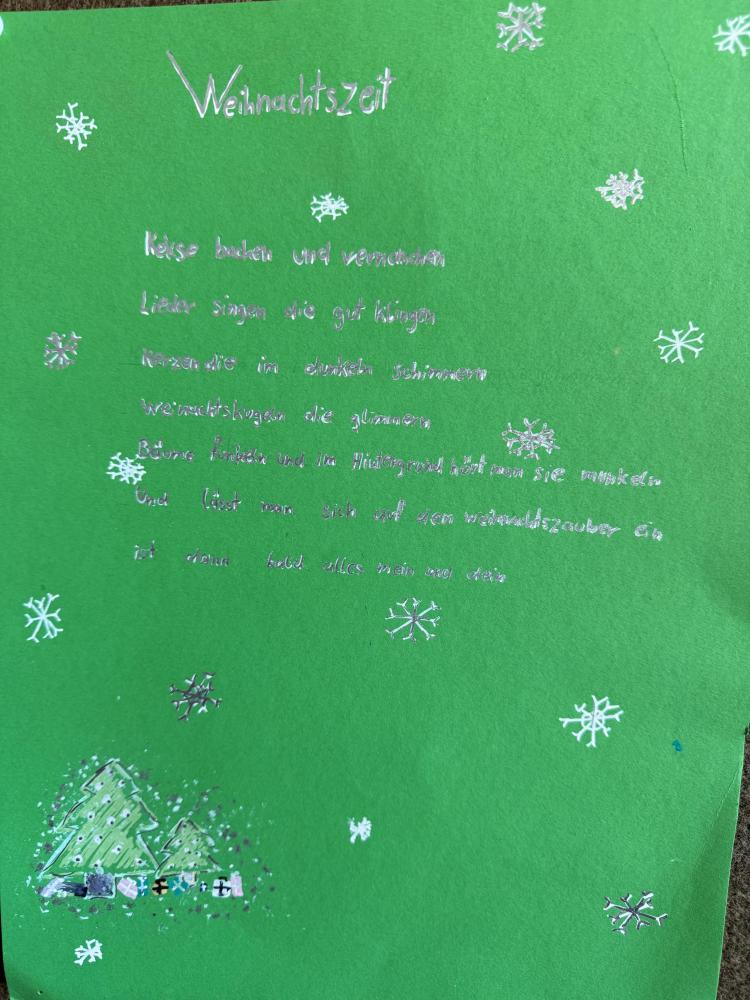 Weihnachtszeit
Kekse backen und vernaschen
Lieder singen die gut klingen
Kerzen die im dunkeln schimmern
Weinachtskugeln die glimmern
Bäume funkeln und im Hintergrund hört man sie munkeln
Und lässt man sich auf den weinachtszauber ein
ist dann bald alles mein und dein